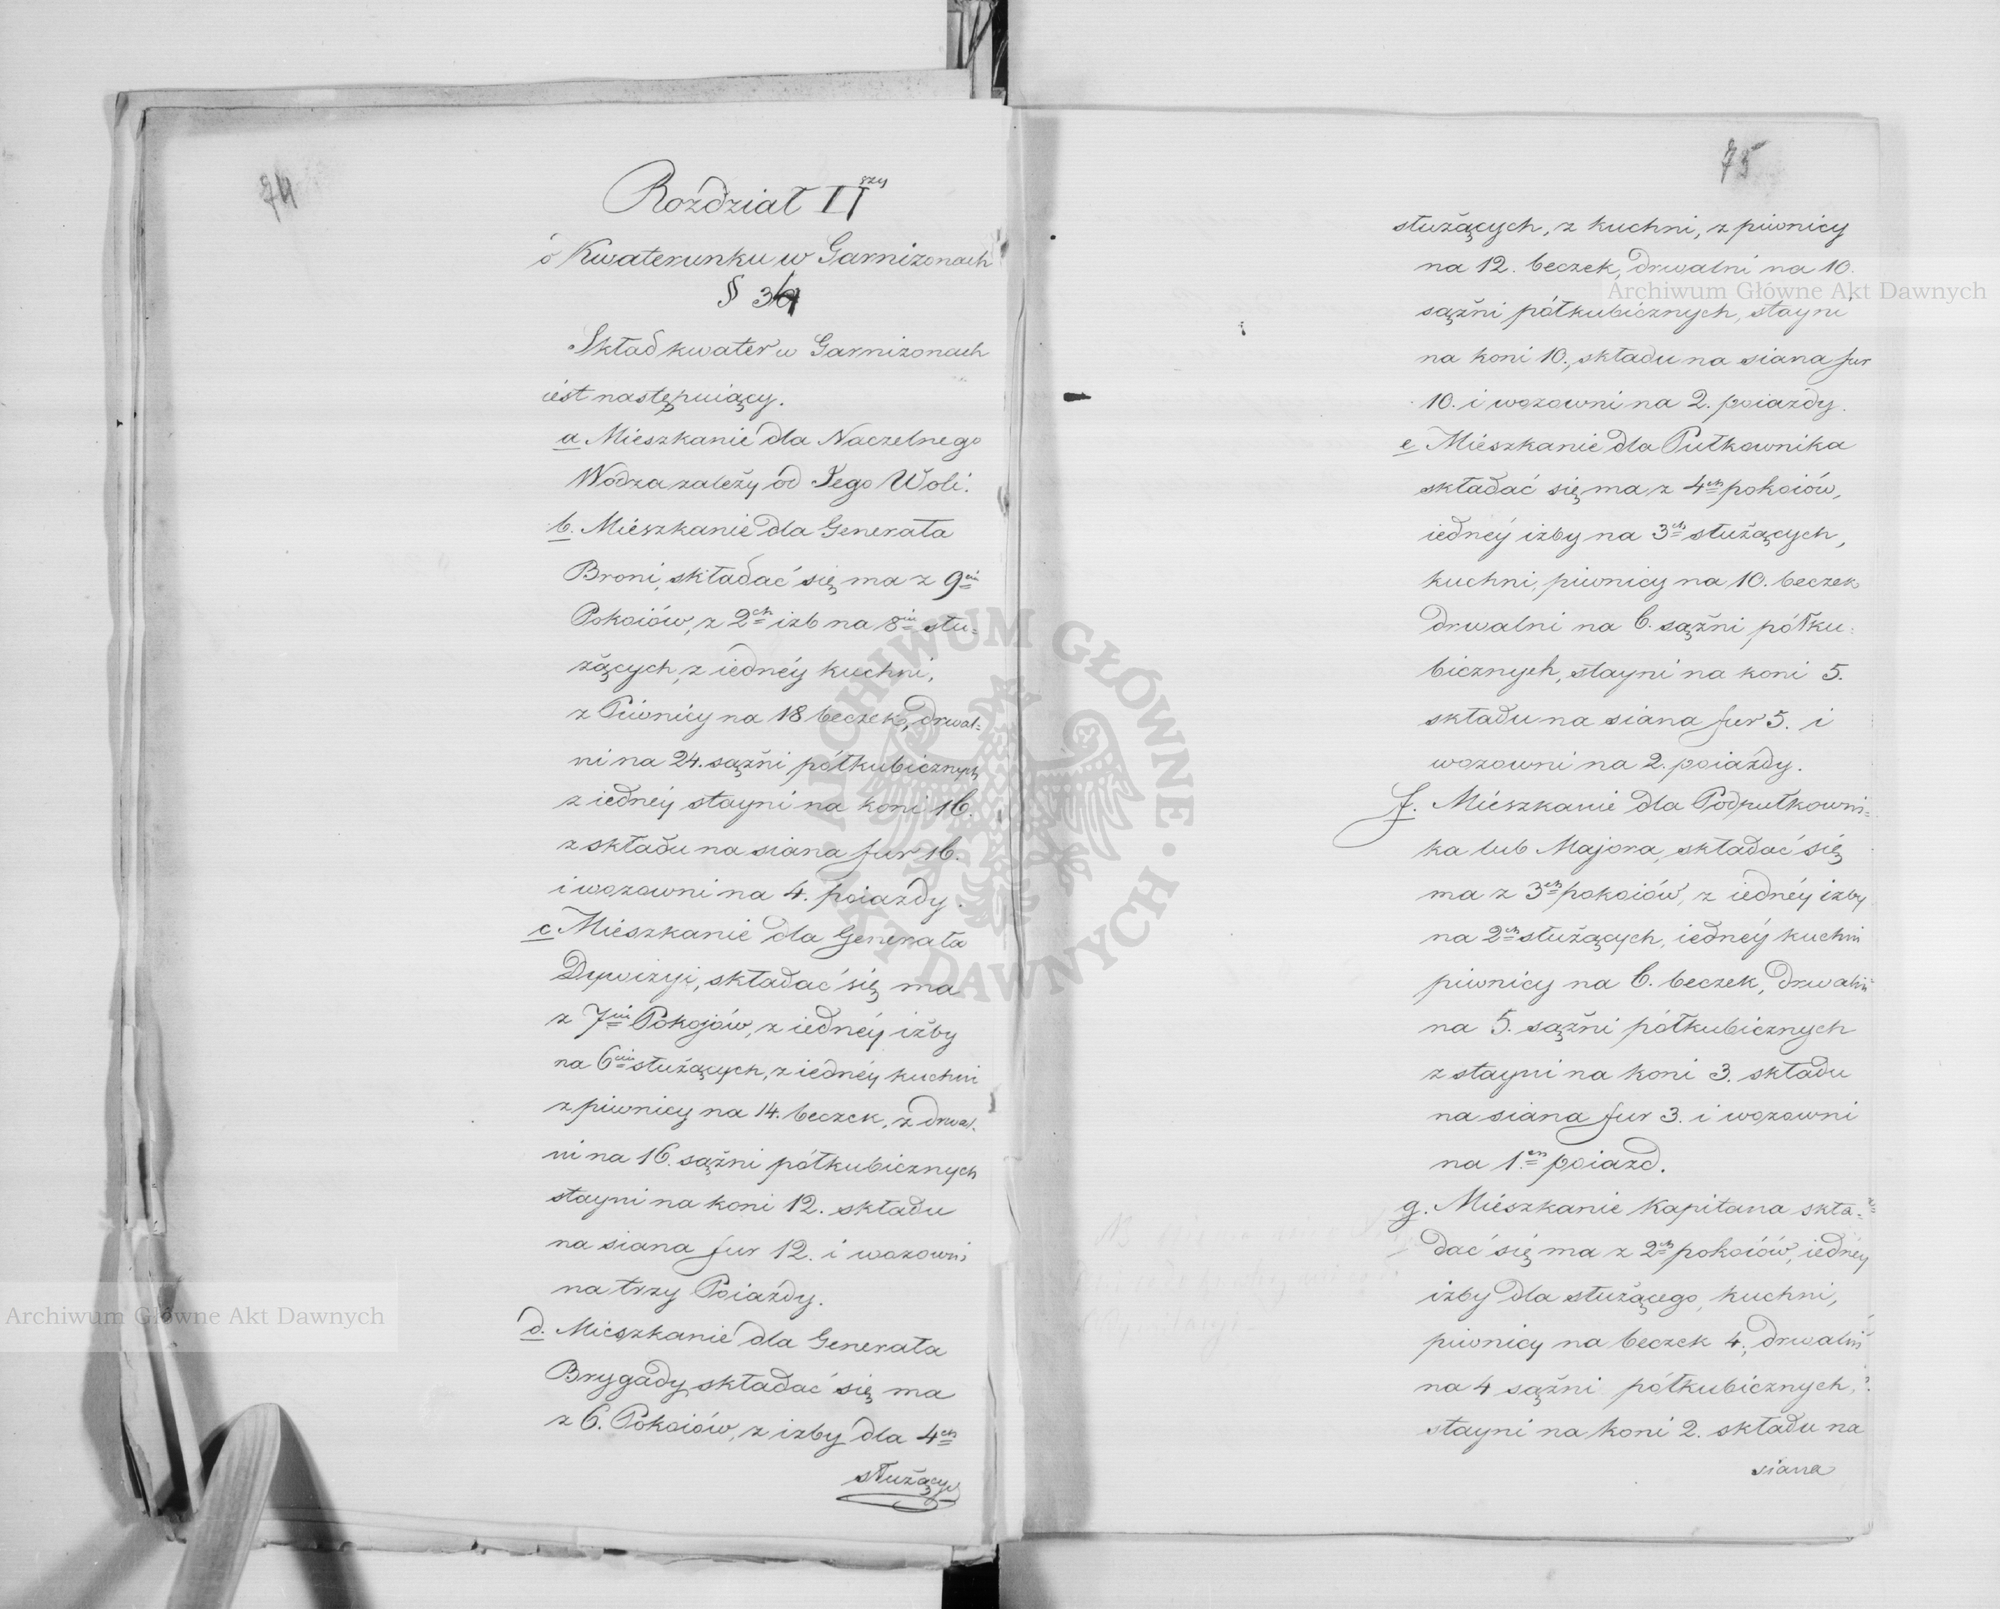 74
Rozdział II gi
o Kwaterunku w Garnizonach
§ 34
Skład kwater w Garnizonach
iest następuiący.
a Mieszkanie dla Naczelnego
Wodza zależy od Jego Woli.
b. Mieszkanie dla Generała
Broni, składać się ma z 9ciu
Pokoiów, z 2ch izb na 8iu słu-
żących, z iednéy kuchni,
z Piwnicy na 18 beczek, drwal-
ni na 24. sążni półkubicznych
z iednéy stayni na koni 16.
z składu na siana fur 16.
i wozowni na 4. poiazdy.
c Mieszkanie dla Generała
Dywizyi, składać się ma
z 7miu Pokojów, z iednéy izby
na 6ciu służących, z iednéy kuchni
z piwnicy na 14. beczek, z drwal-
ni na 16. sążni półkubicznych
stayni na koni 12. składu
na siana fur 12. i wozowni
na trzy Poiazdy.
d. Mieszkanie dla Generała
Brygady składać się ma
z 6. Pokoiów, z izby dla 4ch
służących
75
służących, z kuchni, z piwnicy
na 12. beczek, drwalni na 10.
sążni półkubicznych, stayni
na koni 10., składu na siana fur
10. i wozowni na 2. poiazdy.
e Mieszkanie dla Pułkownika
składać się ma z 4ch pokoiów,
iednéy izby na 3ch służących,
kuchni, piwnicy na 10. beczek
drwalni na 6. sążni półku-
bicznych, stayni na koni 5.
składu na siana fur 5. i
wozowni na 2. poiazdy.
f. Mieszkanie dla Podpułkowni-
ka lub Majora, składać się
ma z 3ch pokoiów, z iednéy izby
na 2ch służących, iednéy kuchni
piwnicy na 6. beczek, drwalni
na 5. sążni półkubicznych
z stayni na koni 3. składu
na siana fur 3. i wozowni
na 1.en poiazd.
g. Mieszkanie Kapitana skła-
dać się ma z 2ch pokoiów, iednéy
izby dla służącego, kuchni,
piwnicy na beczek 4., drwalni
na 4 sążni półkubicznych,
stayni na koni 2. składu na
siana
Archiwum Główne Akt Dawnych
Archiwum Główne Akt Dawnych
ARCHIWUM GŁÓWNE · AKT DAWNYCH ·